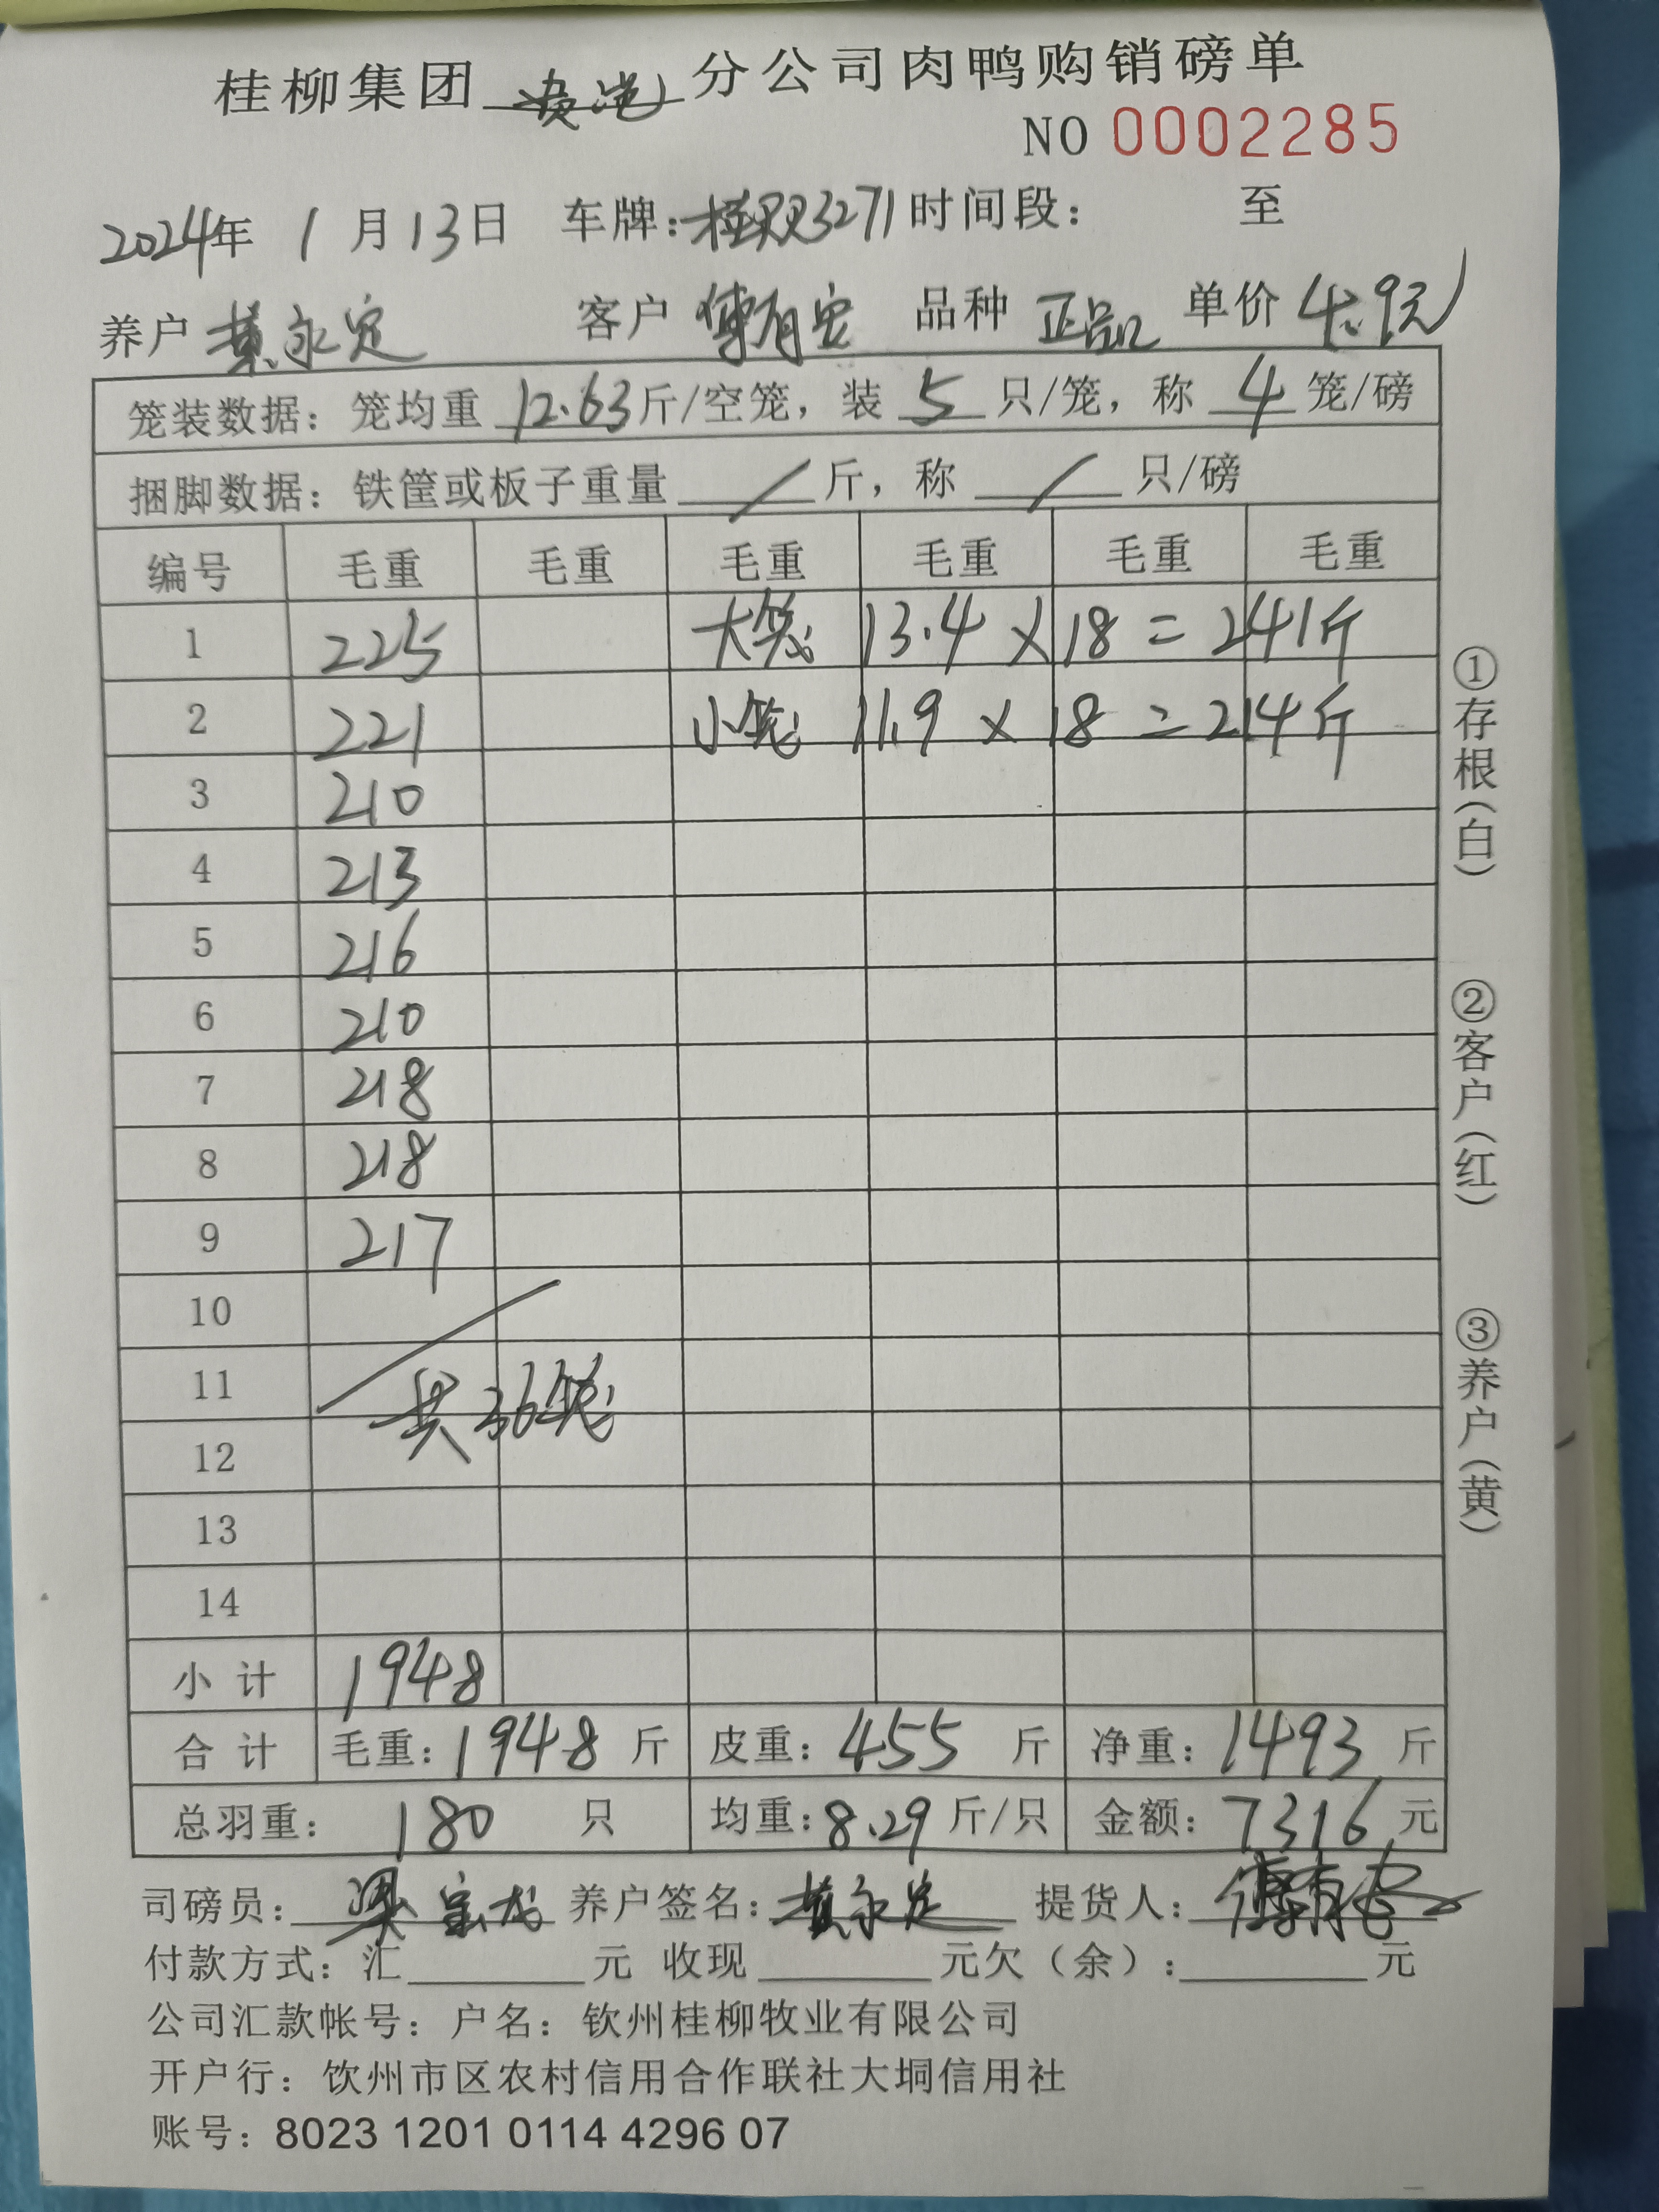 桂柳集团 贵港 分公司肉鸭购销磅单
NO 0002285
2024年 1月13日 车牌: 3271 时间段: 至
养户 黄永定 客户 傅有安 品种 正品 单价 4.9元
笼装数据: 笼均重 12.63 斤/空笼, 装 5 只/笼, 称 4 笼/磅
捆脚数据: 铁筐或板子重量 / 斤, 称 / 只/磅
编号 毛重 毛重 毛重 毛重 毛重 毛重
1 225 大笼 13.4 × 18 = 241斤
2 221 小笼 11.9 × 18 = 214斤
3 210
4 213
5 216
6 210
7 218
8 218
9 217
10
11 共36笼
12
13
14
小计 1948
合计 毛重: 1948 斤 皮重: 455 斤 净重: 1493 斤
总羽重: 180 只 均重: 8.29 斤/只 金额: 7316 元
司磅员: 梁 养户签名: 黄永定 提货人: 傅有安
付款方式: 汇 元 收现 元欠(余): 元
公司汇款帐号: 户名: 钦州桂柳牧业有限公司
开户行: 饮州市区农村信用合作联社大垌信用社
账号: 8023 1201 0114 4296 07
①存根(白)
②客户(红)
③养户(黄)